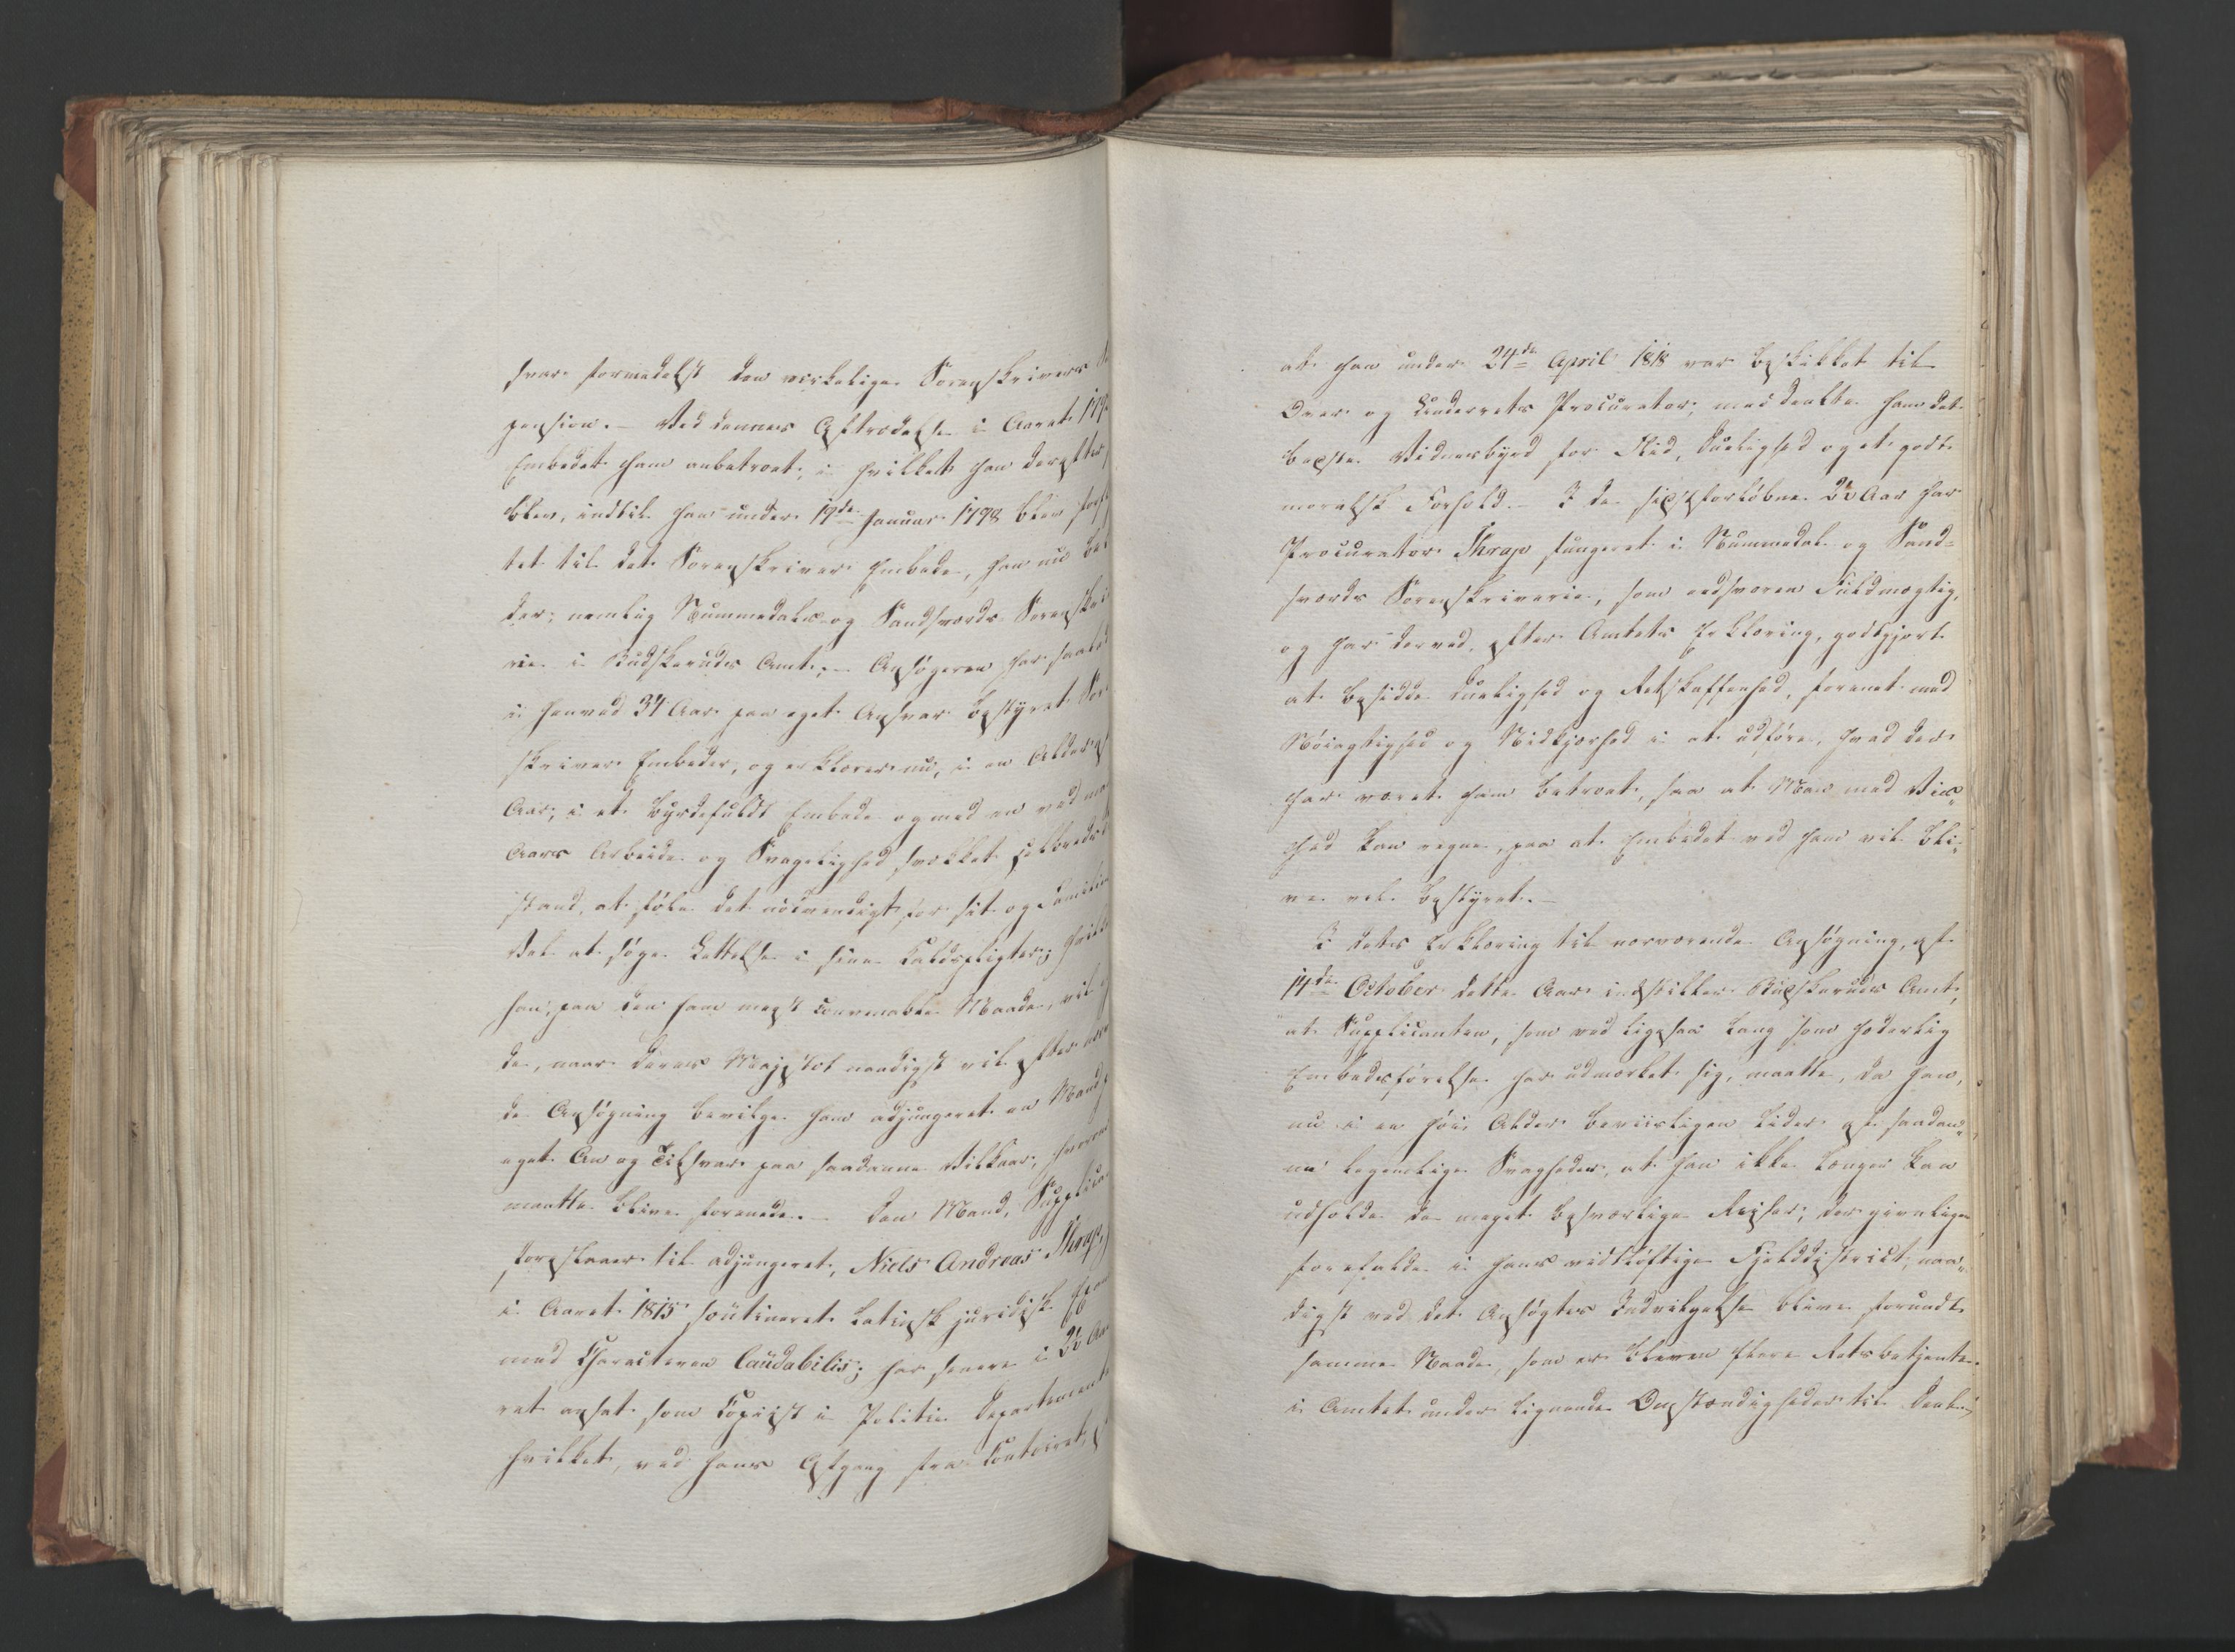 svar formedelst den virkelige Sorenskrivers
pension. – Ved dennes Aftrædelse i Aaret 179
Embedet ham anbetroet, i hvilket han derefter
blev, indtil han under 19de Januar 1798 blev forf
tet til det Sorenskriver Embede, han nu be
der; nemlig Nummedals og Sandsværds Sorenskri
rie i Budskeruds Amt; – Ansøgeren har saaled
i henved 34 Aar paa eget Ansvar bestyret Sor
skriver Embeder, og erklærer nu, i en Alder af
Aar, i et byrdefuldt Embede og med en ved ma
Aars Arbeide og Svagelighed svækket Helbreds
stand, at føle det nödvendigt for sit og Familie
Vel at søge Lettelse i sine Kaldspligter; hvilk
han, paa den ham mest convenable Maade, vil
de, naar Deres Majestet naadigst vil efter
de Ansøgning bevilge ham adjungeret en Mand
eget An og Tilsvar paa saadanne Vilkaar, hvorom
maatte blive forenede. – Den Mand, Supplica
foreslaaer til adjungeret, Niels Andreas Thrap,
i Aaret 1815 soutineret Latinsk juridisk Exam
med Characteren laudabilis; har senere i 2½ Aar
ret ansat som Copiist i Politie Departemente
hvilket, ved hans Afgang fra Contoiret,
at han under 24de April 1818 var beskikket til
Over og Underrets Procurator, meddeelte ham det
bedste Vidnesbyrd for Flid, Duelighed og et godt
moralsk Forhold. – I de sidstforløbne 2½ Aar har
Procurator Thrap fungeret i Nummedal og Sand-
sværds Sorenskriverie, som eedsvoren Fuldmægtig,
og har derved, efter Amtets Erklæring, godtgjort
at besidde Duelighed og Retskaffenhed, forenet med
Nöiagtighed og Nidkjærhed i at udføre, hvad der
har været ham betroet, saa at Man med Vis-
hed kan regne paa at Embedet ved ham vil bli-
ve vel bestyret. –
I dets Erklæring til nærværende Ansøgning, af
14de October dette Aar indstiller Buskeruds Amt,
at Supplicanten, som ved ligesaa lang som hæderlig
Embedsførelse har udmærket sig, maatte, da han,
nu i en høi Alder beviisligen lider af saadan-
ne legemlige Svagheder, at han ikke længer kan
udholde de meget besværlige Reiser, der jevnligen
forefalde i hans vidtløftige Fjelddistrict, naa-
digst ved det Ansøgtes Indvilgelse blive forundt
samme Naade, som er bleven flere Retsbetjente
i Amtet under lignende Omstændigheder til Deel;